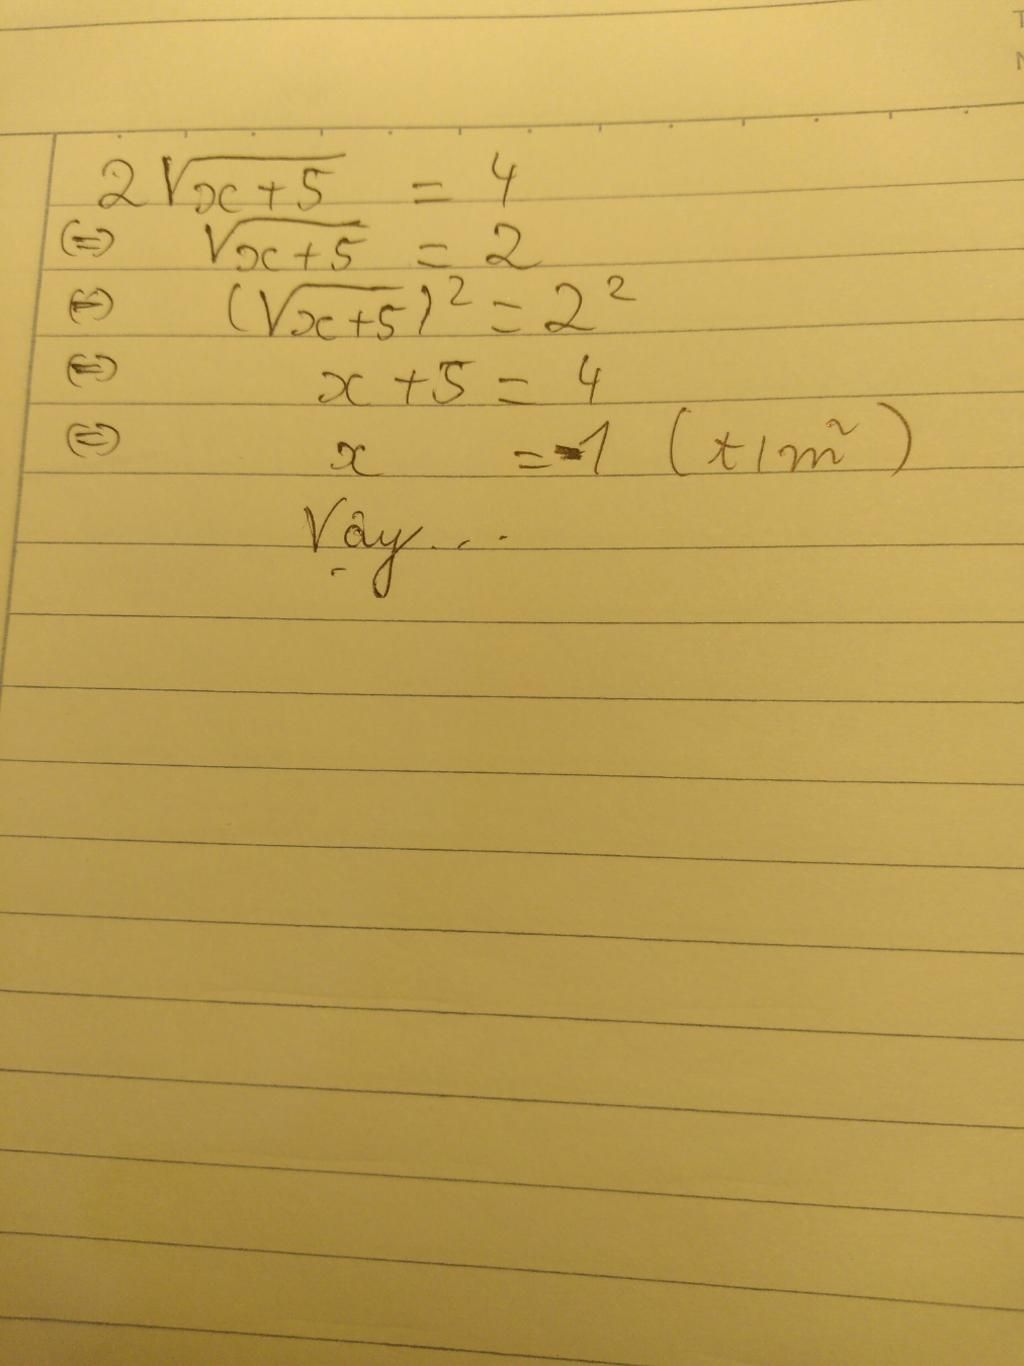 2√x+5 = 4
⇔ √x+5 = 2
⇔ (√x+5)² = 2²
⇔ x+5 = 4
⇔ x = -1 (t/m²)
Vậy...